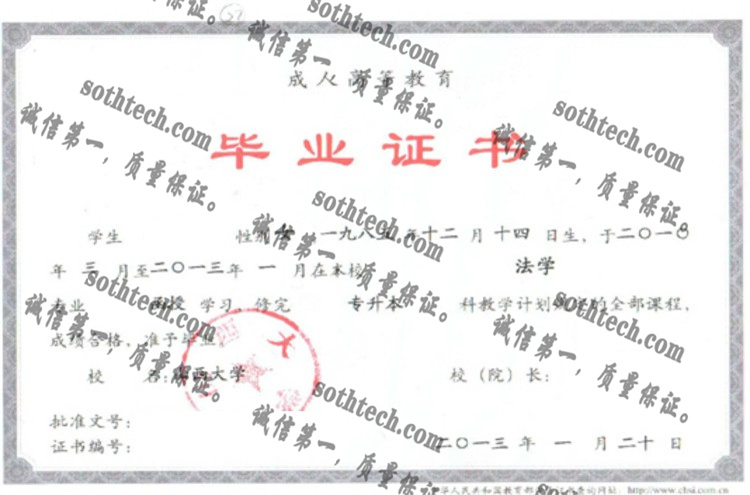 sothtech.com
诚信第一，质量保证。
sothtech.com
诚信第一，质量保证。
sothtech.com
诚信第一，质量保证。
成人高等教育
毕业证书
学生 性别 一九八五年十二月十四日生，于二〇一〇
年三月至二〇一三年一月在本校 法学
专业 函授 学习，修完 专升本 科教学计划 的全部课程，
成绩合格，准予毕业。
校 名： 西大学 校（院）长：
批准文号：
证书编号： 二〇一三年一月二十日
sothtech.com
诚信第一，质量保证。
sothtech.com
诚信第一，质量保证。
sothtech.com
诚信第一，质量保证。
sothtech.com
诚信第一，质量保证。
http://www.chsi.com.cn